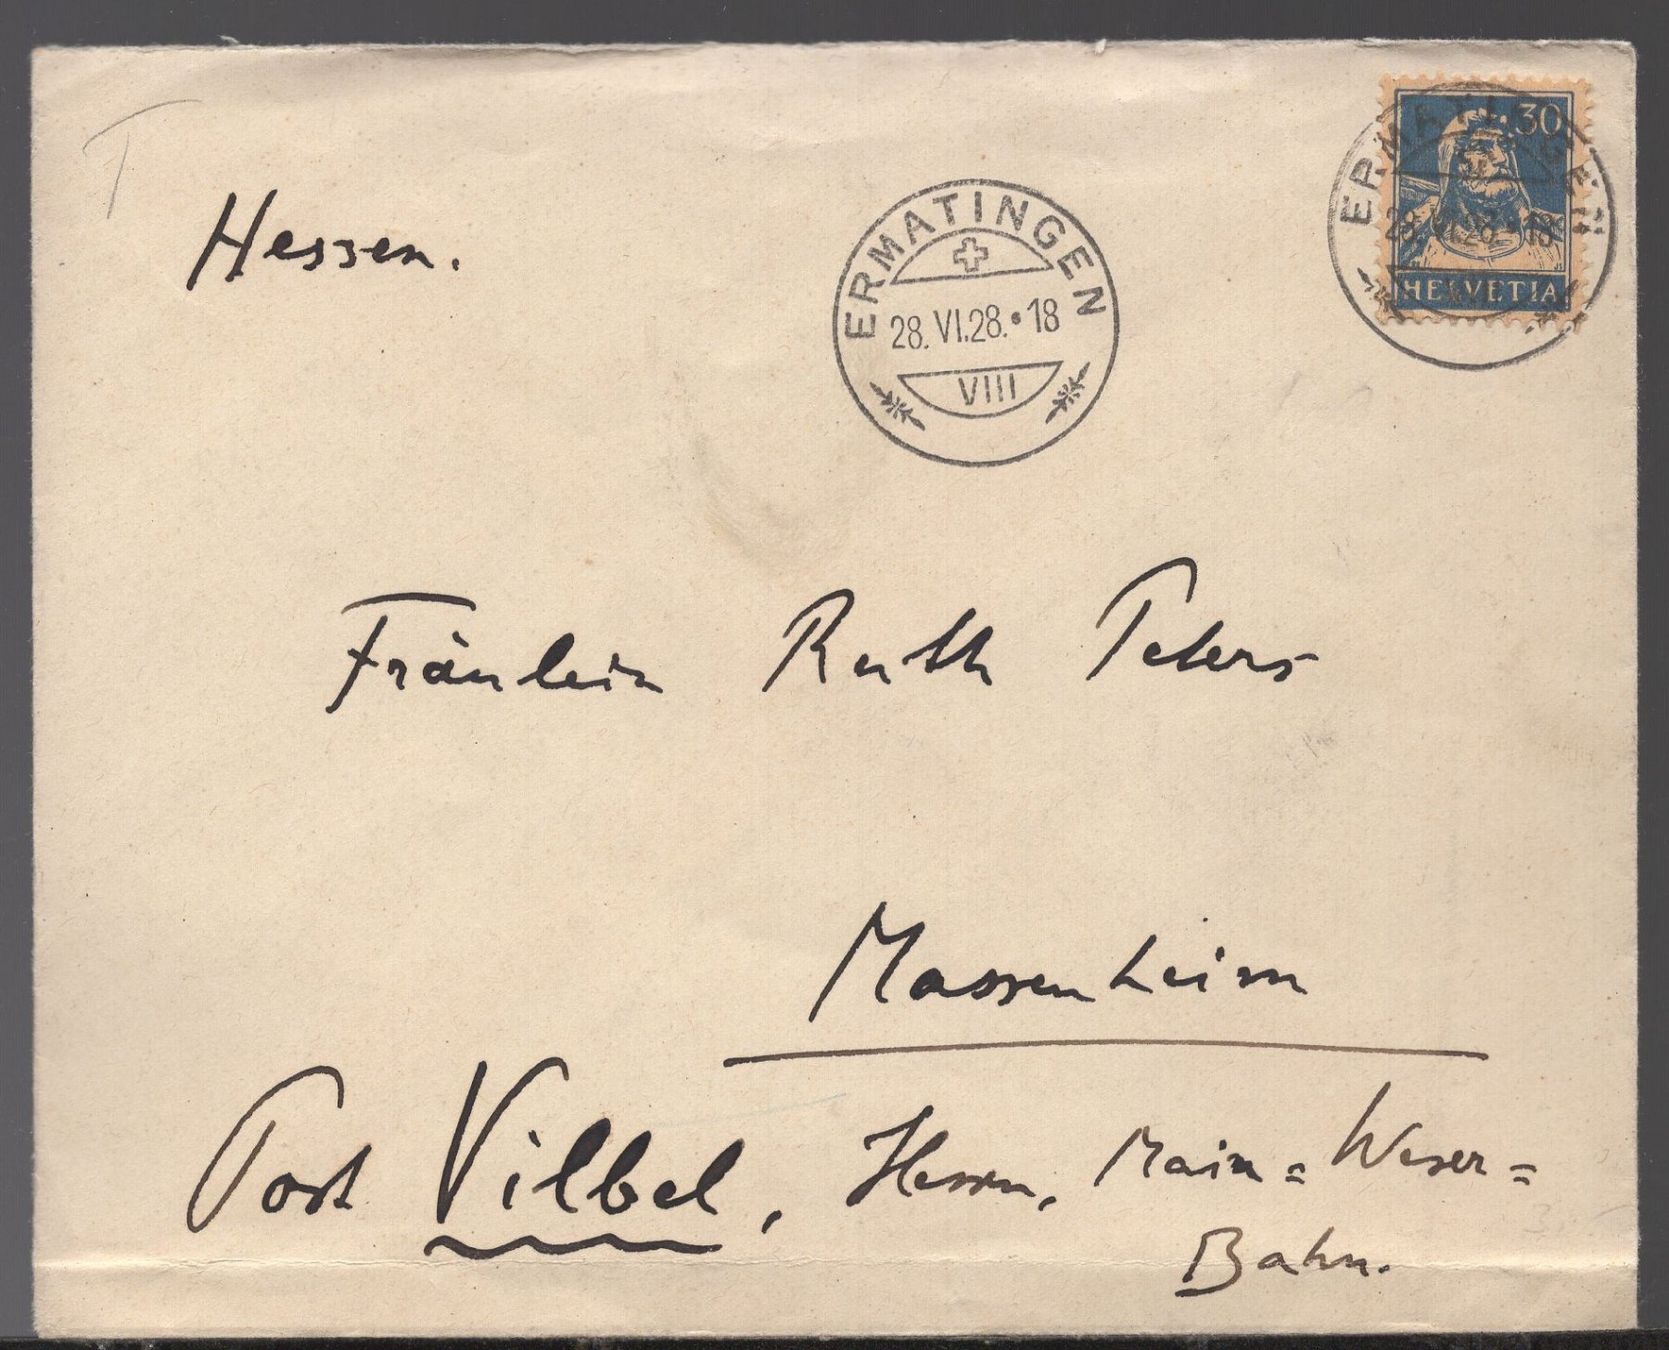 T
Hessen.
ERMATINGEN
28.VI.28.•18
VIII
30
HELVETIA
ERMATINGEN
28.VI.28.•18
Fräulein Ruth Peters
Massenheim
Post Vilbel, Hessen, Main=Weser=
Bahn.